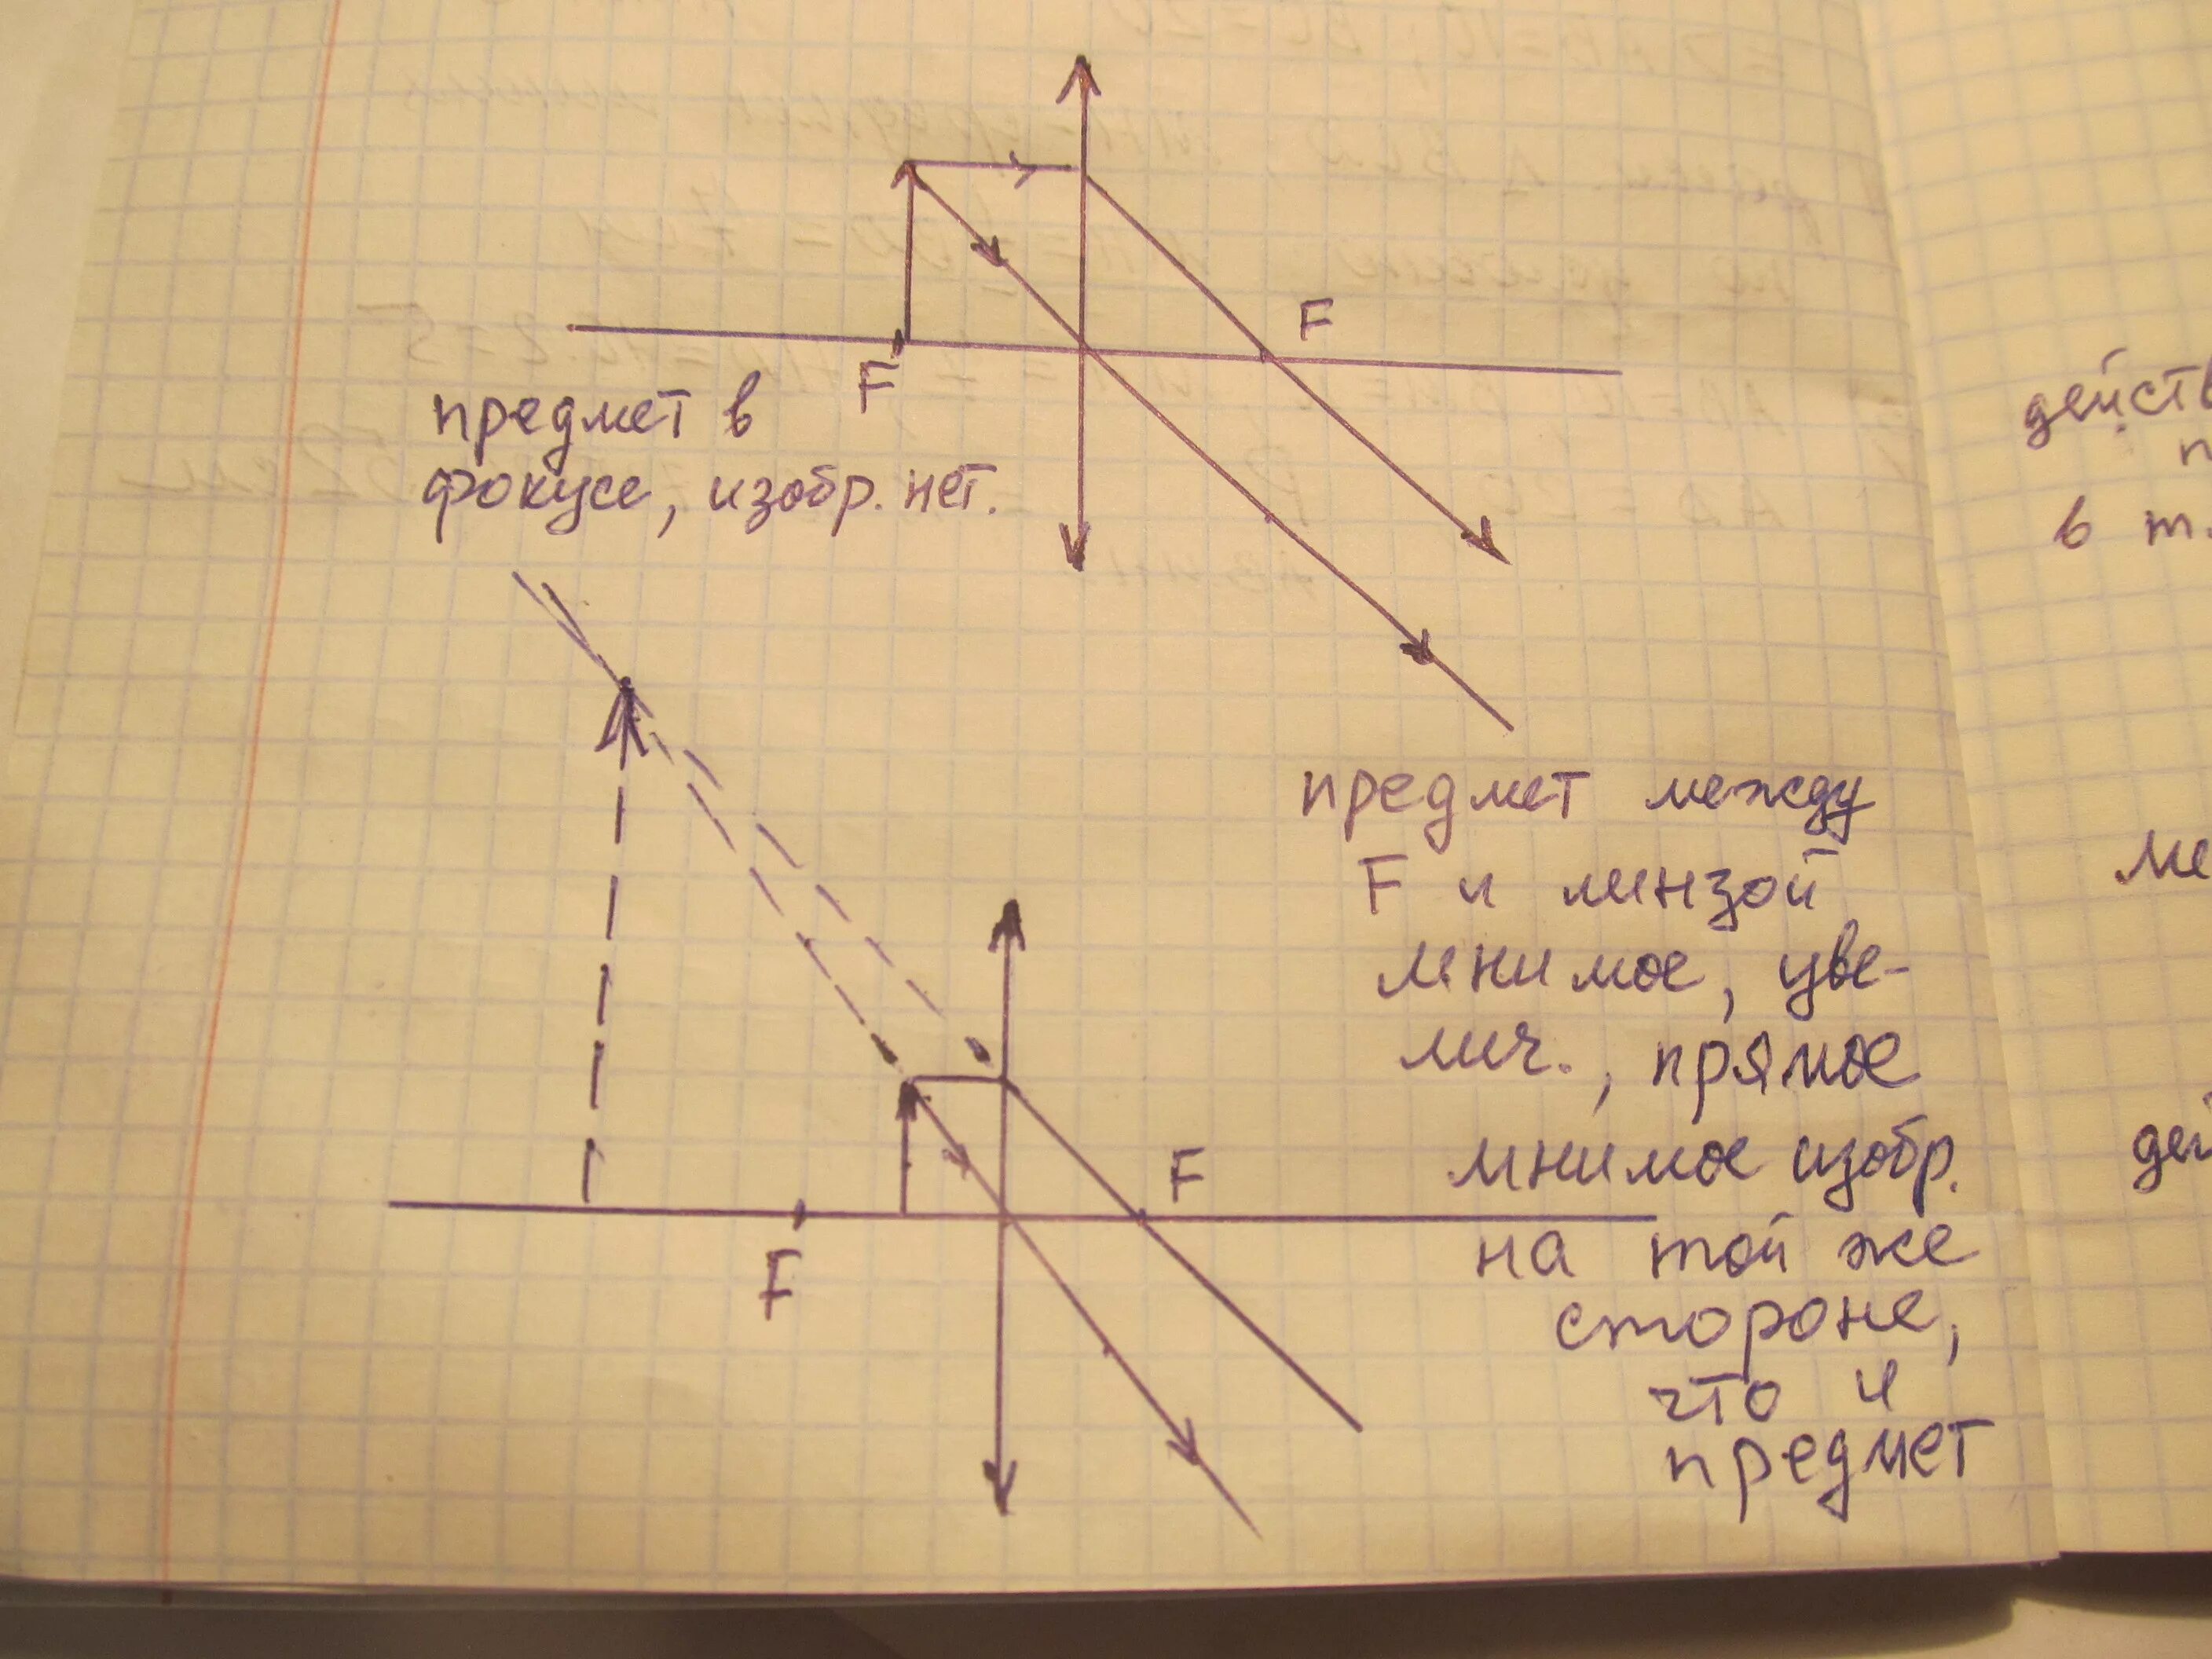 F
F
предмет в
фокусе, изобр. нет.
предмет между
F и линзой
мнимое, уве-
лич., прямое
мнимое изобр.
на той же
стороне,
что и
предмет
F
F
в т.